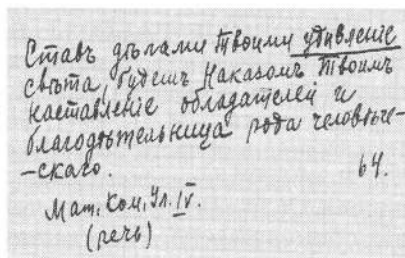 Ставъ дѣлами Твоими удивленіе
свѣта, будешь Наказомъ Твоимъ
наставленіе обладателей и
благодѣтельница рода человѣче-
-скаго.
64.
Мат. Ком. Ул. IV.
(речь)